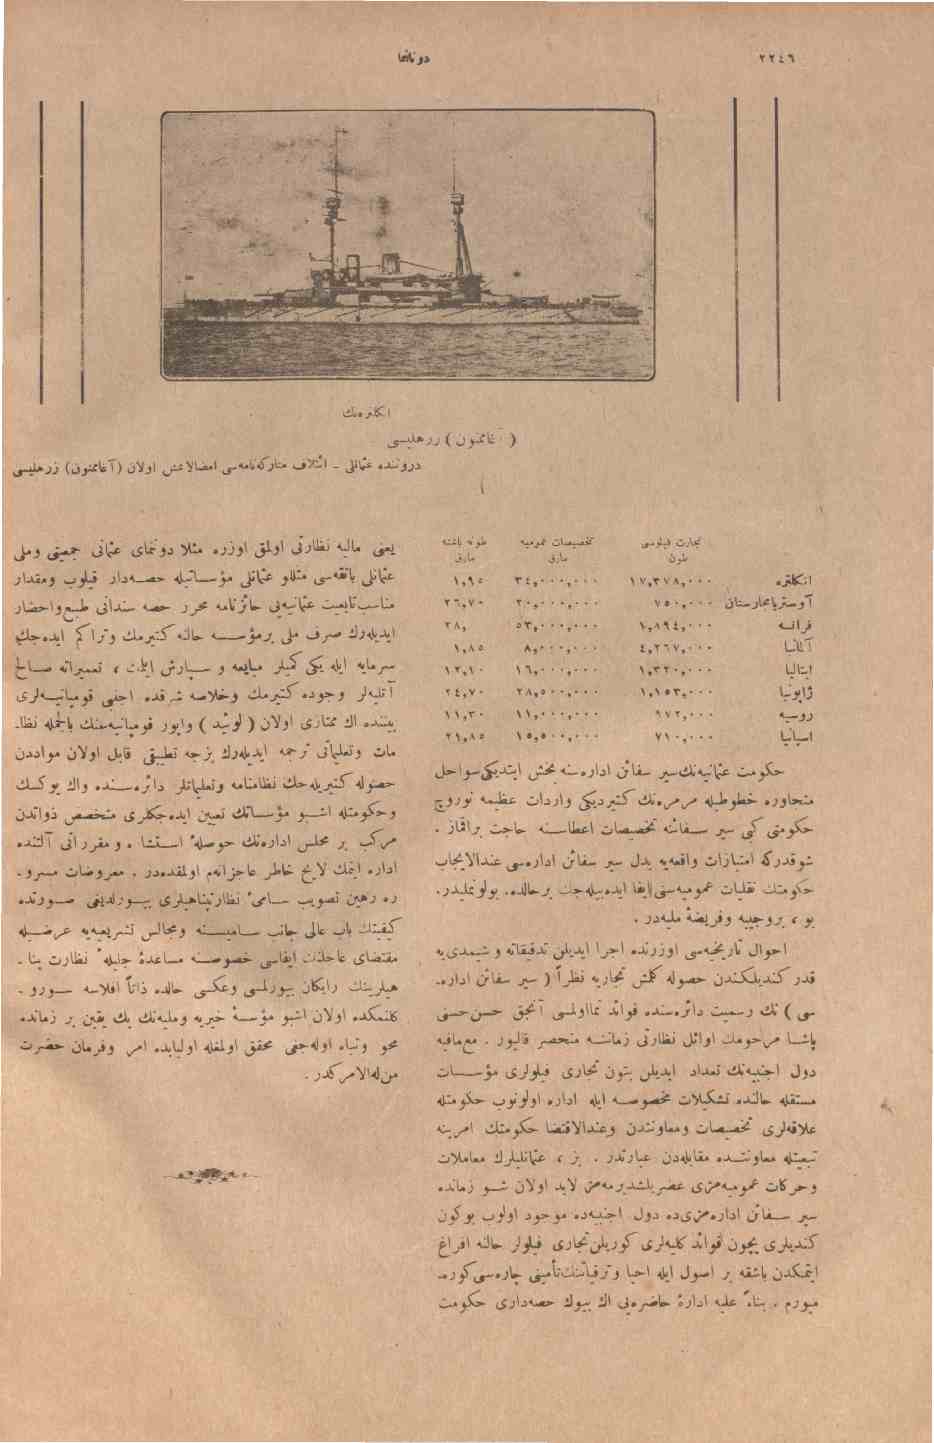 ٢٢٤٦
دونانما
انكلتره‌نك
( آغاممنون ) زرهليسى
دروننده عثمانلى ـ ائتلاف متاركه‌نامه‌سى امضالانمش اولان (آغاممنون) زرهليسى
تجارت فيلوسى تخصيصات عموميه طونه باشنه
طون مارق مارق
انكلتره ١٧,٣٧٨,٠٠٠ ٣٤,٠٠٠,٠٠٠ ١,٩٥
آوستريامجارستان ٧٥٠,٠٠٠ ٢٠,٠٠٠,٠٠٠ ٢٦,٧٠
فرانسه ١,٨٩٤,٠٠٠ ٥٣,٠٠٠,٠٠٠ ٢٨,
آلمانيا ٤,٢٦٧,٠٠٠ ٨,٠٠٠,٠٠٠ ١,٨٥
ايتاليا ١,٣٢٠,٠٠٠ ١٦,٠٠٠,٠٠٠ ١٢,١٠
ژاپونيا ١,١٥٣,٠٠٠ ٢٨,٥٠٠,٠٠٠ ٢٤,٧٠
روسيه ٩٧٢,٠٠٠ ١١,٠٠٠,٠٠٠ ١١,٣٠
اسپانيا ٧١٠,٠٠٠ ١٥,٥٠٠,٠٠٠ ٢١,٨٥
حكومت عثمانيه‌نك سير سفائن اداره‌سنه بخش ايتديكى سواحل
متجاوره خطوطيله مرمره‌نك كتيرديكى واردات عظيمه نوروچ
حكومتى كبى سير سفائنه تخصيصات اعطاسنه حاجت براقماز .
شوقدركه امتيازات واقعه‌يه بدل سير سفائن اداره‌سى عندالايجاب
حكومتك نقليات عموميه‌سنى ايفا ايده‌بيله‌جك برحالده. بولونمليدر.
بو ، بروجيبه وفريضهٔ مليه‌در .
احوال تاريخيه‌سى اوزرنده اجرا ايديلن تدقيقاته و شيمدى‌يه
قدر كنديلكندن حصوله كلمش تجاربه نظراً ( سير سفائن اداره-
سى ) نك رسميت دائره‌سنده فوائد نمااولمسى آنجق حسن حسنى
پاشا مرحومك اوائل نظارتى زماننه منحصر قاليور . مع‌مافيه
دول اجنبيه‌نك تعداد ايديلن بتون تجارى فيلولرى مؤسسات
مستقله حالنده تشكيلات مخصوصه ايله اداره اولونوب حكومتله
علاقه‌لرى تخصيصات ومعاونتدن وعندالاقتضا حكومتك امرينه
تبعيتله معاونتده مقابله‌دن عبارتدر . بز ، عثمانليلرك معاملات
وحركات عموميه‌مزى عصريلشديرمه‌مز لابد اولان شو زمانده
سير سفائن اداره‌مزى‌ده دول اجنبيه‌ده موجود اولوب بوكون
كنديلرى ايچون فوائد كليه‌لرى كوريلن تجارى فيلولر حالنه افراغ
ايتمكدن باشقه بر اصول ايله احيا وترقياتنك تأمينى چاره‌سى كوره‌-
ميورم . بناءً عليه ادارهٔ حاضره‌يى اك بيوك حصه‌دارى حكومت
يعنى ماليه نظارتى اولمق اوزره مثلا دونمناى عثمانى جمعيتى وملى
عثمانلى بانقه‌سى مثللو عثمانلى مؤسساتيله حصه‌دار قيلوب ومقدار
مناسب تابعيت عثمانيه‌يى حائزنامه محرر حصه سنداتى طبع واحضار
ايديله‌رك صرف ملى برمؤسسه حالنه كتيرمك وتراكم ايده‌جك
سرمايه ايله يكى كميلر مبايعه و سپارش ايتمك ، تعميراته صالح
آتليه‌لر وجوده كتيرمك وخلاصه شرقده اجنبى قومپانيه‌لرى
بيننده اك ممتازى اولان ( لوئيد ) واپور قومپانيه‌سنك بالجمله نظا-
مات وتعليماتى ترجمه ايديله‌رك بزجه تطبيقى قابل اولان موادندن
حصوله كتيريله‌جك نظامنامه وتعليماتلر دائره‌سنده واك يوكسك
وحكومتله اشبو مؤسساتك تعيين ايده‌جكلرى متخصص ذواتدن
مركب بر مجلس اداره‌نك حوصلهٔ استشاره ومقرراتى آلتنده
اداره ايتمك لايح خاطر عاجزانه‌م اولمقده‌در . معروضات مسرو-
ره رهين تصويب سامىٔ نظارتپناهيلرى بيورلديغى صورتده
كيفيتك باب عالى جانب ساميسنه ومجالس تشريعيه‌يه عرضيله
مقتضاى عاجلنك ايفاسى خصوصنه مساعدهٔ جليلهٔ نظارت پنا-
هيلرينك رايكان بيورلمسى وعكسى حالده ذاتاً افلاسه سورو-
كلنمكده اولان اشبو مؤسسهٔ خيريه ومليه‌نك پك يقين بر زمانده
محو وتباه اوله‌جغى محقق اولمغله اولبابده امر وفرمان حضرت
من له‌الامركدر .